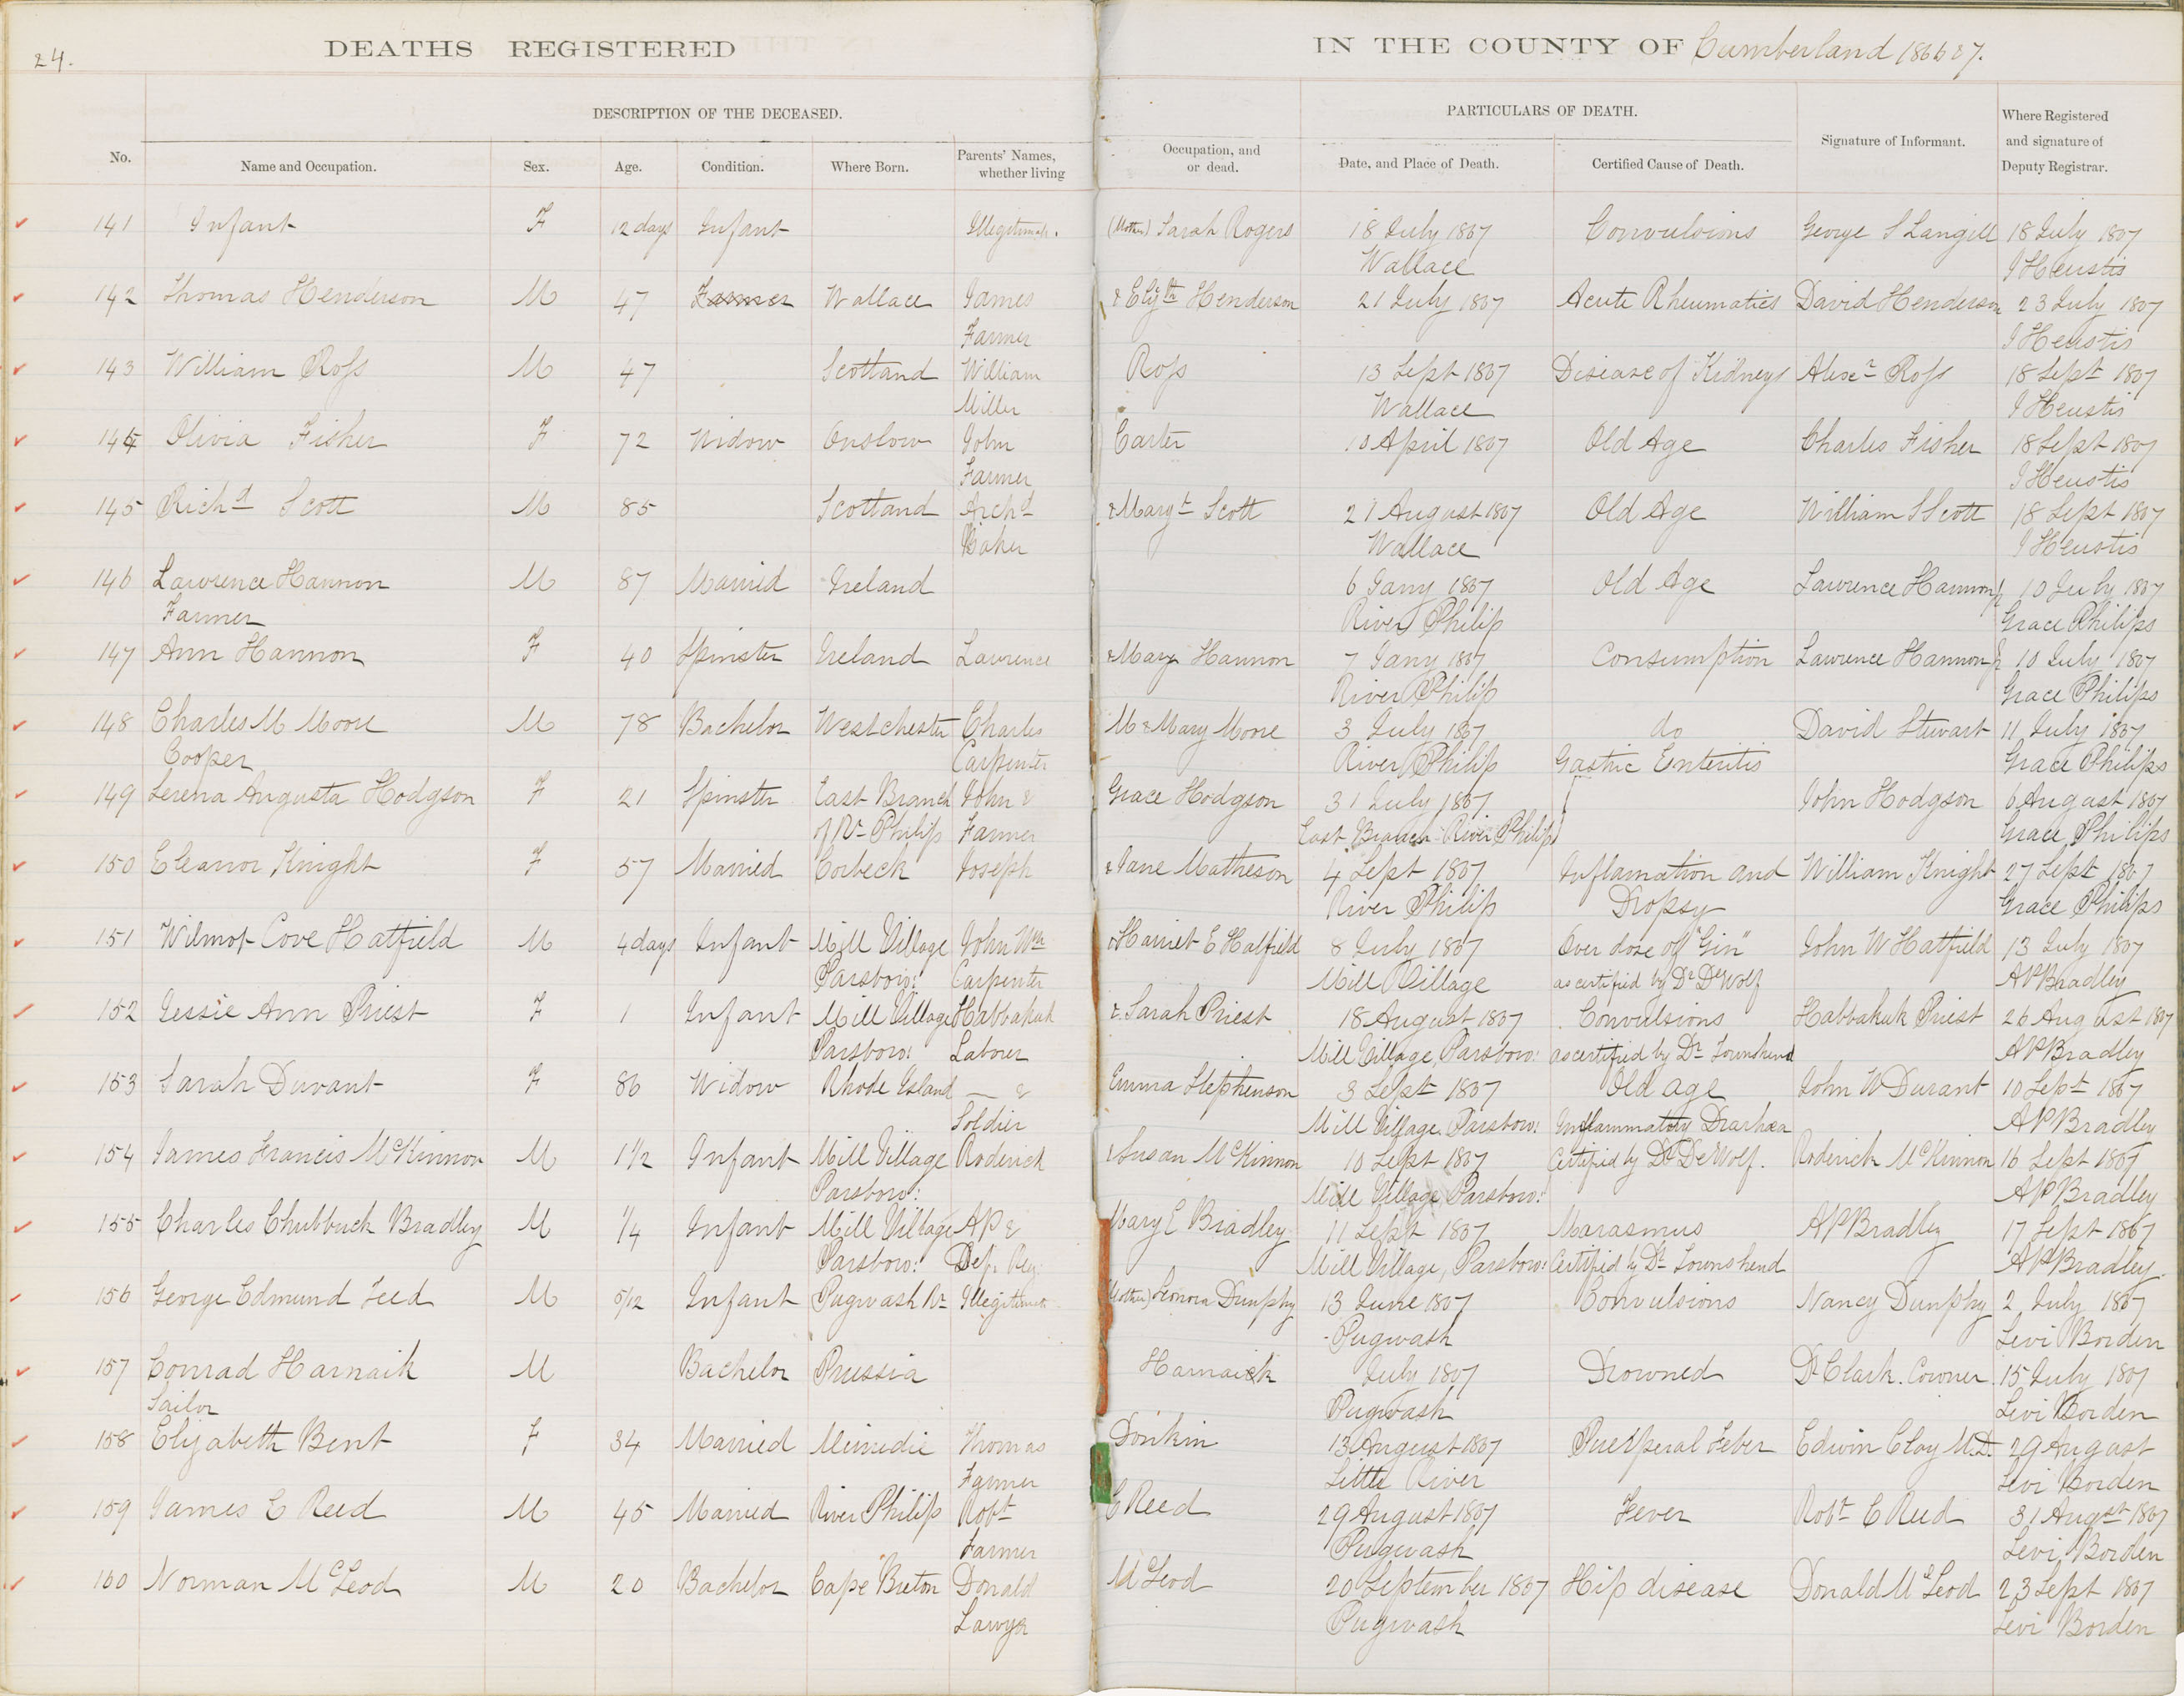 24.
DEATHS REGISTERED IN THE COUNTY OF Cumberland 1866 & 7.
DESCRIPTION OF THE DECEASED. PARTICULARS OF DEATH.
No. Name and Occupation. Sex. Age. Condition. Where Born. Parents' Names, whether living Occupation, and or dead. Date, and Place of Death. Certified Cause of Death. Signature of Informant. Where Registered and signature of Deputy Registrar.
141 Infant F 12 days Infant Illegitimate. (Mother) Sarah Rogers 18 July 1867 Convulsions George S Langill 18 July 1867
Wallace J Heustis
142 Thomas Henderson M 47 Farmer Wallace James & Elizth Henderson 21 July 1867 Acute Rheumatics David Henderson 23 July 1867
Farmer J Heustis
143 William Ross M 47 Scotland William Ross 13 Sept 1867 Disease of Kidneys Alexr Ross 18 Sept 1867
Miller Wallace J Heustis
144 Olivia Fisher F 72 Widow Onslow John Carter 10 April 1867 Old Age Charles Fisher 18 Sept 1867
Farmer J Heustis
145 Richd Scott M 85 Scotland Archd & Margt Scott 21 August 1867 Old Age William S Scott 18 Sept 1867
Baker Wallace J Heustis
146 Lawrence Hannon M 87 Married Ireland 6 Jany 1867 Old Age Lawrence Hannon Jr 10 July 1867
Farmer River Philip Grace Philips
147 Ann Hannon F 40 Spinster Ireland Lawrence & Mary Hannon 7 Jany 1867 Consumption Lawrence Hannon Jr 10 July 1867
River Philip Grace Philips
148 Charles M Moore M 78 Bachelor Westchester Charles M & Mary Moore 3 July 1867 do David Stewart 11 July 1867
Cooper Carpenter River Philip Gastric Enteritis Grace Philips
149 Serena Augusta Hodgson F 21 Spinster East Branch John & Grace Hodgson 31 July 1867 John Hodgson 6 August 1867
of Rr Philip Farmer East Branch River Philip Grace Philips
150 Eleanor Knight F 57 Married Corbeck Joseph & Jane Matheson 4 Sept 1867 Inflamation and William Knight 27 Sept 1867
River Philip Dropsy Grace Philips
151 Wilmot Cove Hatfield M 4 days Infant Mill Village John Wm & Harriet E Hatfield 8 July 1867 Over dose of "Gin" John W Hatfield 13 July 1867
Parsboro: Carpenter Mill Village as certified by Dr DeWolf AP Bradley
152 Jessie Ann Priest F 1 Infant Mill Village Habbakuk & Sarah Priest 18 August 1867 Convulsions Habbakuk Priest 26 August 1867
Parsboro: Laborer Mill Village, Parsboro: as certified by Dr Townshend AP Bradley
153 Sarah Durant F 86 Widow Rhode Island — & Emma Stephenson 3 Sept 1867 Old age John W Durant 10 Sept 1867
Soldier Mill Village, Parsboro: Inflammatory Diarhœa AP Bradley
154 James Francis McKinnon M 1 1/2 Infant Mill Village Roderick & Susan McKinnon 10 Sept 1867 Certified by Dr DeWolf. Roderick McKinnon 16 Sept 1867
Parsboro: Mill Village Parsboro: AP Bradley
155 Charles Chubbuck Bradley M 1/4 Infant Mill Village AP & Mary E Bradley 11 Sept 1867 Marasmus AP Bradley 17 Sept 1867
Parsboro: Dep. Reg. Mill Village, Parsboro: Certified by Dr Townshend AP Bradley.
156 George Edmund Teed M 5/12 Infant Pugwash Rr Illegitimate (Mother) Leonora Dunphy 13 June 1867 Convulsions Nancy Dunphy 2 July 1867
Pugwash Levi Borden
157 Conrad Harnaik M Bachelor Prussia Harnaick July 1867 Drowned Dr Clark. Coroner. 15 July 1867
Sailor Pugwash Levi Borden
158 Elizabeth Bent F 34 Married Menudie Thomas Donkin 13 August 1867 Puerperal Feber Edwin Clay M.D. 29 August
Farmer Little River Levi Borden
159 James C Reed M 45 Married River Philip Robt C Reed 29 August 1867 Fever Robt C Reed 31 Augst 1867
Farmer Pugwash Levi Borden
160 Norman McLeod M 20 Bachelor Cape Breton Donald McLeod 20 September 1867 Hip disease Donald McLeod 23 Sept 1867
Lawyer Pugwash Levi Borden